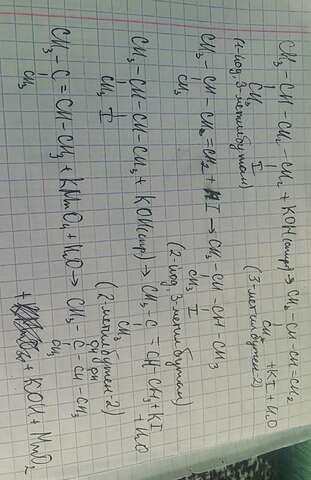 CH3-CH-CH2-CH2 + KOH(спир) → CH3-CH-CH=CH2
CH3 I CH3 + KI + H2O
(1-иод, 3-метилбутан) (3-метилбутен-2)
CH3-CH-CH2=CH2 + HI → CH3-CH-CH-CH3
CH3 CH3 I
(2-иод, 3-метилбутан)
CH3-CH-CH-CH3 + KOH(спир) → CH3-C=CH-CH3 + KI + H2O
CH3 I CH3
(2-метилбутен-2)
OH OH
CH3-C=CH-CH3 + KMnO4 + H2O → CH3-C-CH-CH3
CH3 CH3
+ KOH + MnO2